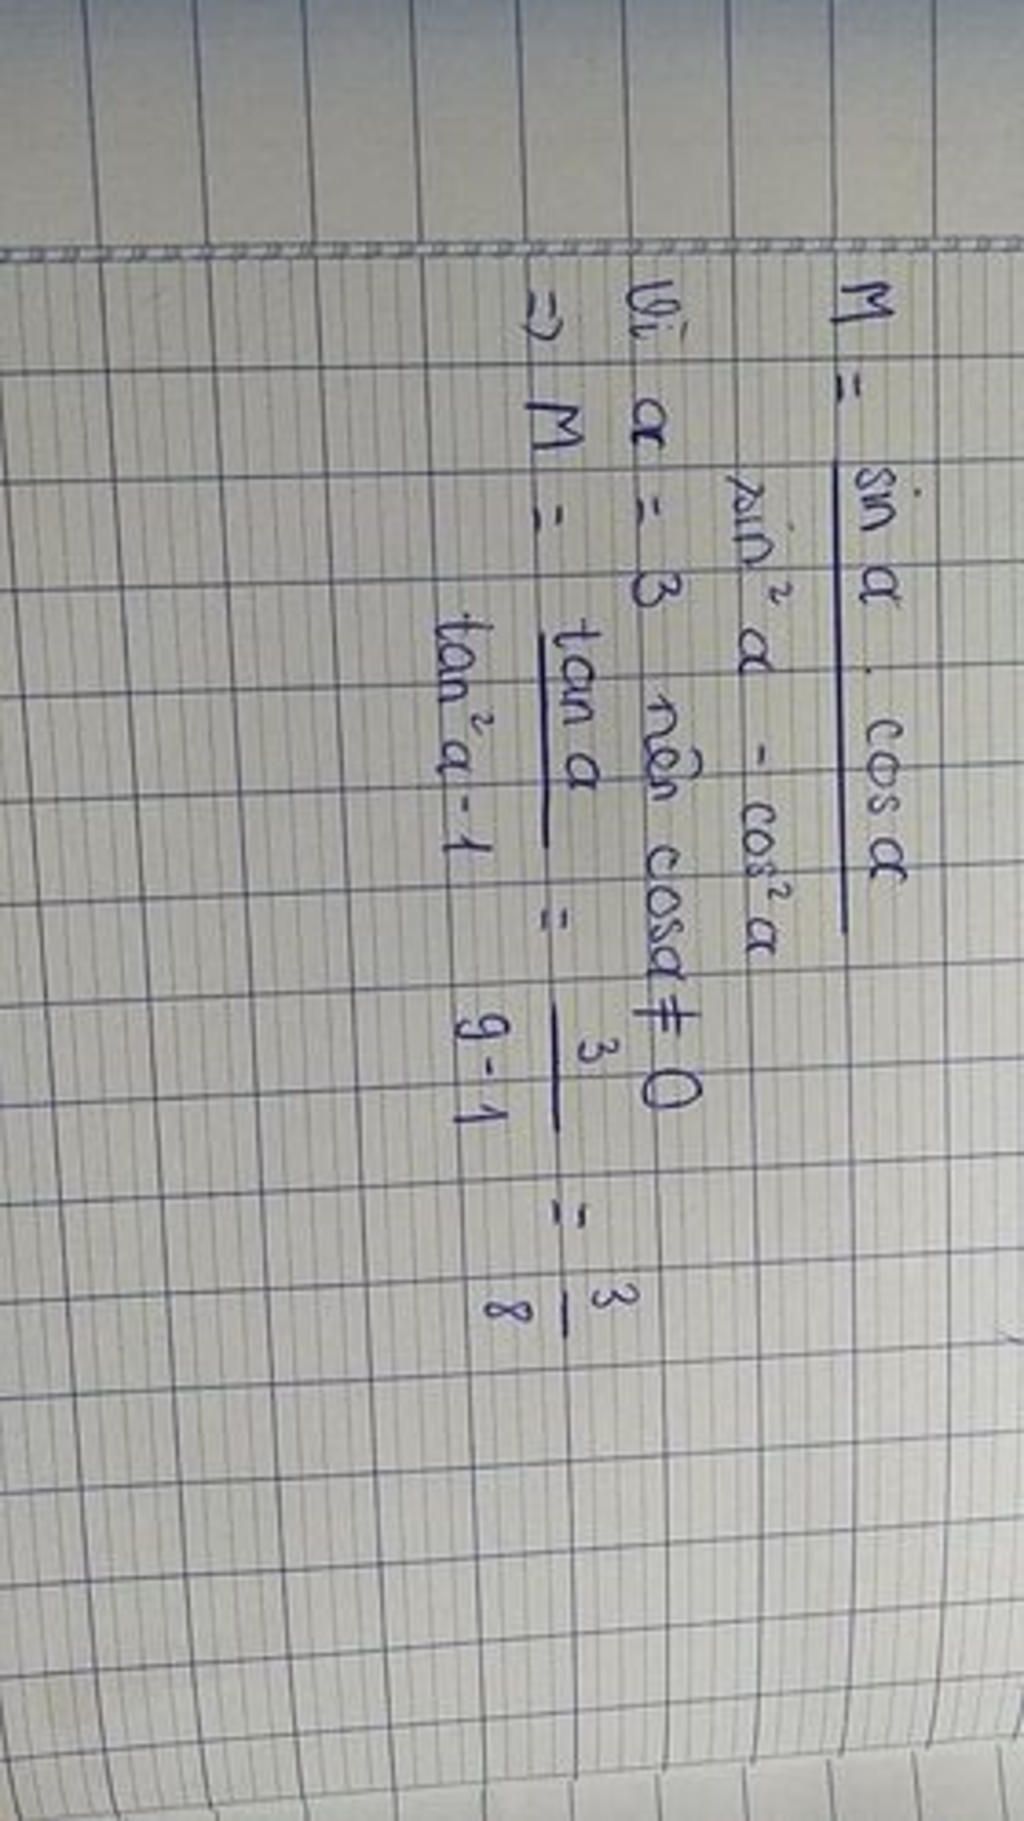 M = sin α . cos α
sin² α - cos² α
Vì α = 3 nên cosα ≠ 0
=> M = tan α / tan² α - 1 = 3 / 9 - 1 = 3 / 8